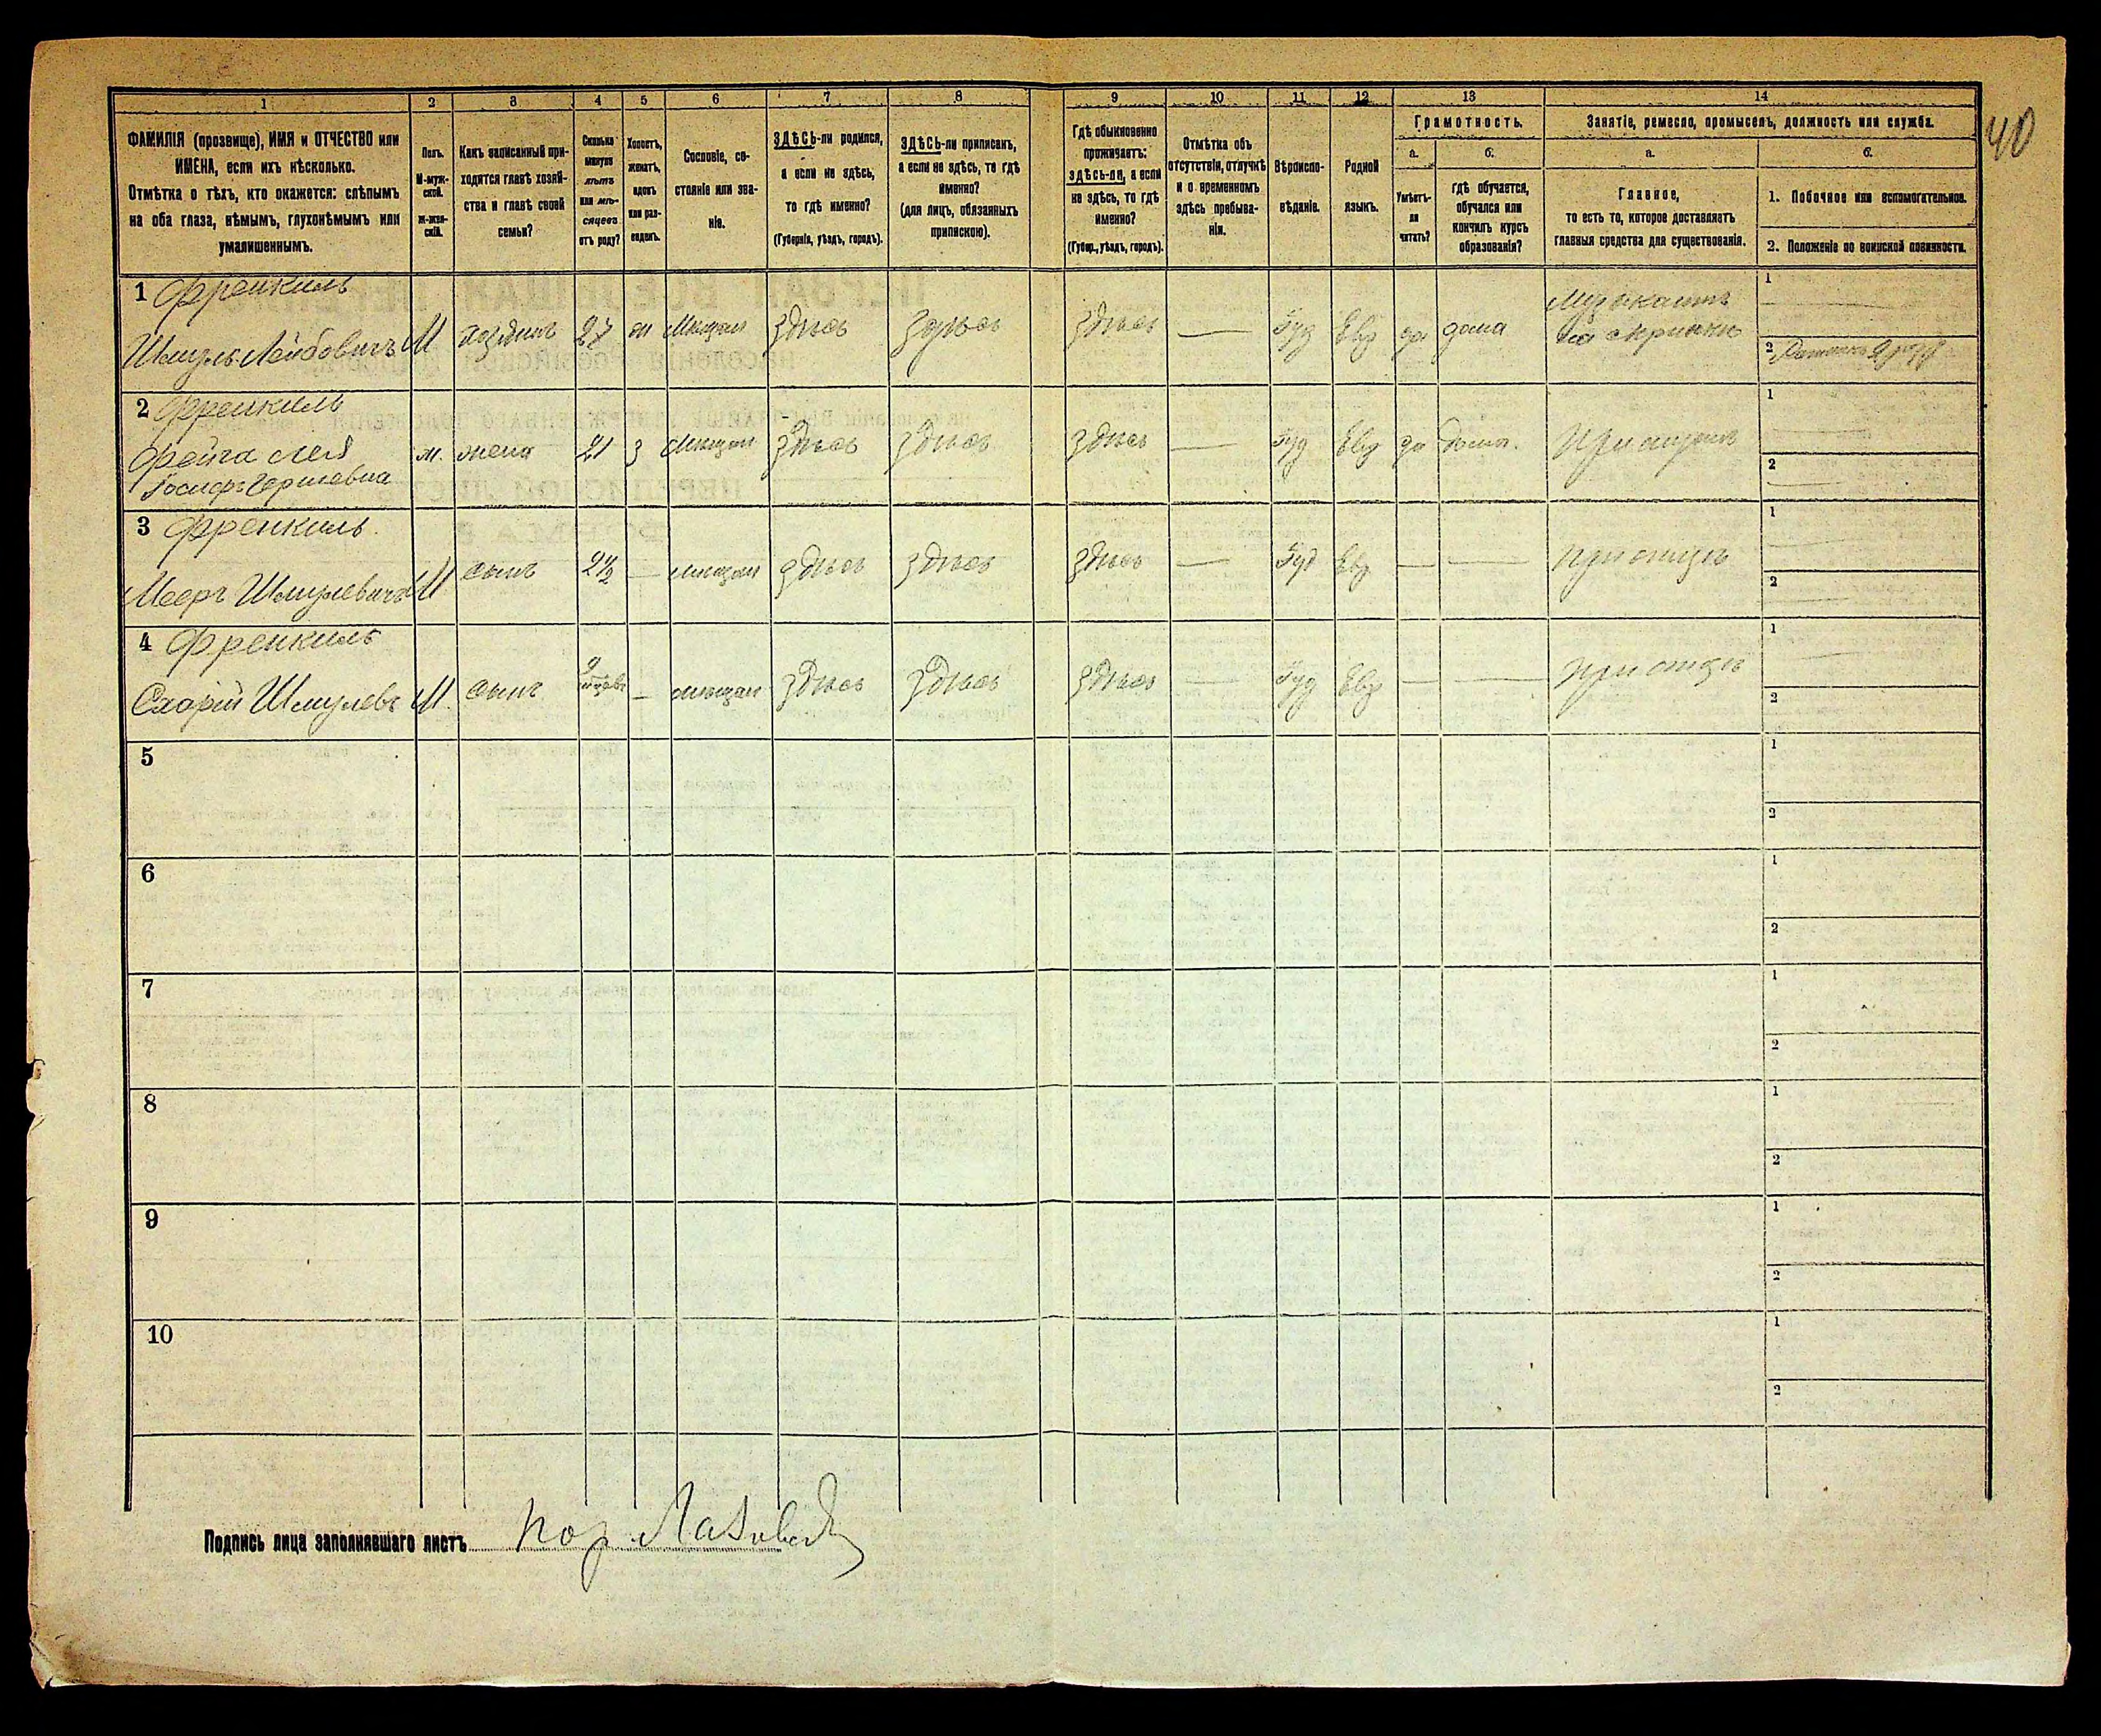 1 2 3 4 5 6 7 8 9 10 11 12 13 14
40
ФАМИЛІЯ (прозвище), ИМЯ и ОТЧЕСТВО или
ИМЕНА, если ихъ нѣсколько.
Отмѣтка о тѣхъ, кто окажется: слѣпымъ
на оба глаза, нѣмымъ, глухонѣмымъ или
умалишеннымъ.
Полъ.
М-муж-
ской.
Ж-жен-
скій.
Какъ записанный при-
ходится главѣ хозяй-
ства и главѣ своей
семьи?
Сколько
минуло
лѣтъ
или мѣ-
сяцевъ
отъ роду?
Холостъ,
женатъ,
вдовъ
или раз-
веденъ.
Сословіе, со-
стояніе или зва-
ніе.
ЗДѢСЬ-ли родился,
а если не здѣсь,
то гдѣ именно?
(Губернія, уѣздъ, городъ).
ЗДѢСЬ-ли приписанъ,
а если не здѣсь, то гдѣ
именно?
(для лицъ, обязанныхъ
припискою).
Гдѣ обыкновенно
проживаетъ:
здѣсь-ли, а если
не здѣсь, то гдѣ
именно?
(Губер., уѣздъ, городъ).
Отмѣтка объ
отсутствіи, отлучкѣ
и о временномъ
здѣсь пребыва-
ніи.
Вѣроиспо-
вѣданіе.
Родной
языкъ.
Грамотность.
а. б.
Умѣетъ-
ли
читать?
гдѣ обучается,
обучался или
кончилъ курсъ
образованія?
Занятіе, ремесло, промыселъ, должность или служба.
а. б.
Главное,
то есть то, которое доставляетъ
главныя средства для существованія.
1. Побочное или вспомогательное.
2. Положеніе по воинской повинности.
1 Френкиль
Шмуль Лейбовичъ М хозяинъ 27 ж Мещан здѣсь здѣсь здѣсь — Іуд Евр да дома Музыкантъ
на скрипкѣ
1 —
2
2 Френкиль
Фейга Лея
Іосифъ Гершевна
ж. жена 21 з Мещан здѣсь здѣсь здѣсь — Іуд Евр да дома. При мужѣ
1 —
2 —
3 Френкиль.
Мееръ Шмулевичъ М сынъ 2½ — мещан здѣсь здѣсь здѣсь — Іуд Евр — — При отцѣ
1 —
2 —
4 Френкиль
Шмулевъ М. сынъ 9 — мещан здѣсь здѣсь здѣсь — Іуд Евр — — При отцѣ
1 —
2
5 1
2
6 1
2
7 1
2
8 1
2
9 1
2
10 1
2
Подпись лица заполнявшаго листъ